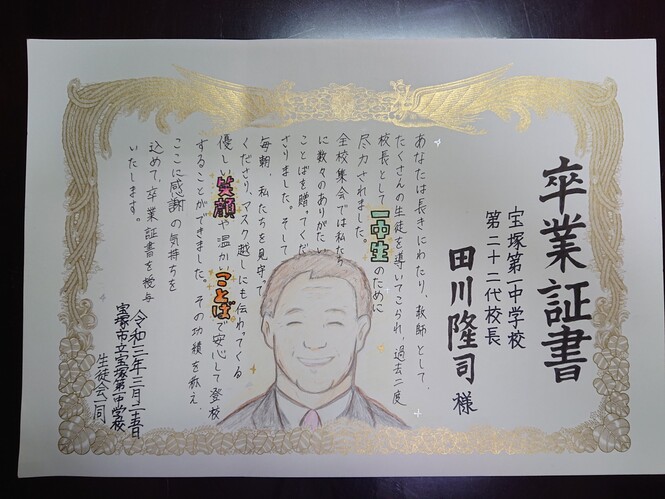 卒業証書
宝塚第一中学校
第二十二代校長
田川隆司 様
あなたは長きにわたり、教師として、
たくさんの生徒を導いてこられ、過去二度
校長として一中生のために
尽力されました。
全校集会では私たち
に数々のありがたい
ことばを贈ってくだ
さりました。そして
毎朝、私たちを見守って
くださり、マスク越しにも伝わってくる
優しい笑顔や温かいことばで安心して登校
することができました。その功績を称え、
ここに感謝の気持ちを
込めて、卒業証書を授与
いたします。
令和三年三月二十五日
宝塚市立宝塚第一中学校
生徒会一同